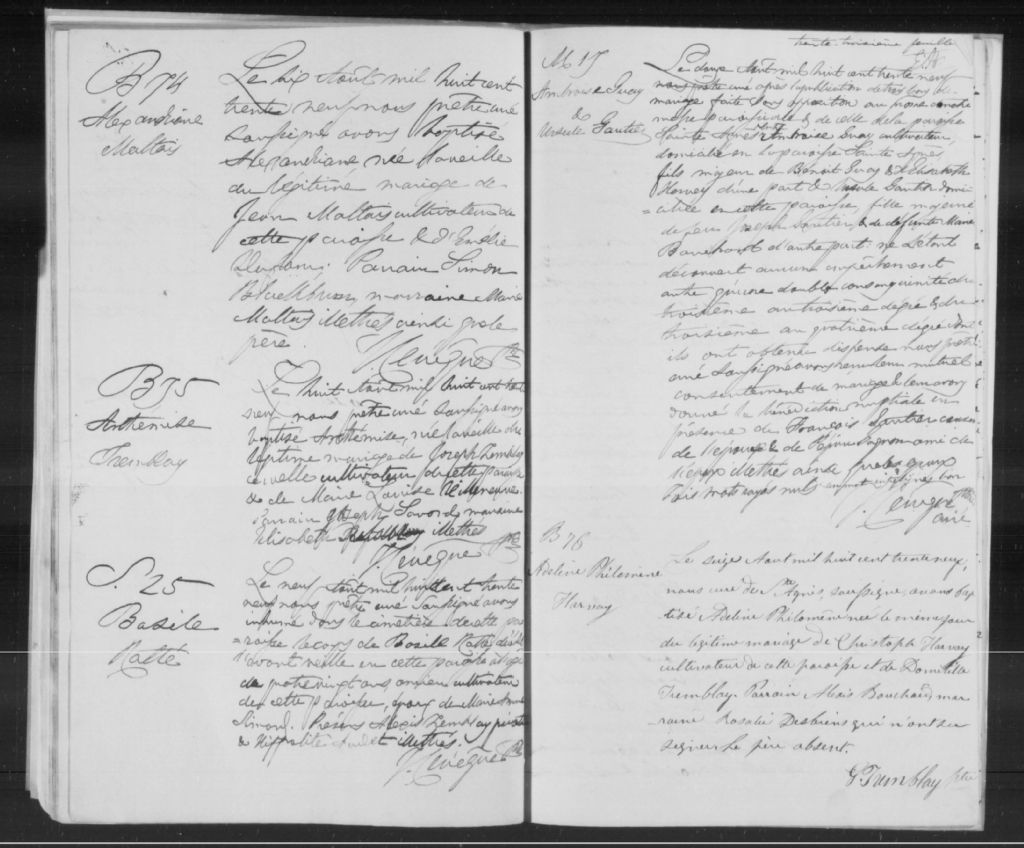 B 74
Alexandrine
Maltais
Le dix Aout mil huit cent
trente neuf nous prêtre curé
soussigné avons baptisé
Alexandrine née la veille
du légitime mariage de
Jean Maltais cultivateur de
cette paroisse & d'Emélie
Parrain Simon
Blackburn, marraine Marie
Maltais illettrés ainsi que le
père.
J. Levêque Ptre
B 75
Arthemise
Tremblay
Le huit Aout mil huit cent trente
neuf nous prêtre curé soussigné avons
baptisé Arthemise, née la veille du
légitime mariage de Joseph Tremblay
cultivateur de cette paroisse
& de Marie Louise Villeneuve
Parrain Joseph Savard marraine
Elisabeth illettrés
J. Levêque Ptre
S. 25
Basile
Ratté
Le neuf Aout mil huit cent trente
neuf nous prêtre curé soussigné avons
inhumé dans le cimetière de cette pa=
=roisse le corps de Basile Ratté décédé
l'avant veille en cette paroisse âgé
de quatrevingt ans, ancien cultivateur
de cette paroisse, époux de Marie Anne
Simard. Présens Alexis Tremblay
& Hippolite illettrés.
J. Levêque Ptre
trente-troisième feuille
M. 17
Ambroise Guay
&
Ursule Gautier
Le douze Aout mil huit cent trente neuf
nous prêtre curé après la publication de trois bans de
mariage faite sans opposition au prône de notre
messe paroissiale & de celle de la paroisse
Sainte Agnès entre Ambroise Guay cultivateur,
domicilié en la paroisse Sainte Agnès
fils majeur de Benoit Guay & d'Elisabeth
Hervey d'une part & Ursule Gautier domi=
=ciliée en cette paroisse, fille majeure
de feu Joseph Gautier, & de défunte Marie
Bouchard d'autre part: ne s'étant
découvert aucun empêchement
autre qu'une double consanguinité du
troisième au troisième degré & du
troisième au quatrième degré dont
ils ont obtenu dispense nous prêtre
curé soussigné avons reçu leur mutuel
consentement de mariage & leur avons
donné la bénédiction nuptiale en
présence de François Gautier cousin
de l'épouse & de Pépin Gagnon ami de
l'époux illettrés ainsi que les époux
Trois mots rayés nuls
J. Levêque Ptre
curé
B 76
Adeline Philomène
Harvay
Le seize Aout mil huit cent trente neuf,
nous curé de Ste Agnès, soussigné, avons bap
tisé Adeline Philomène née le même jour
du légitime mariage de Christophe Harvay
cultivateur de cette paroisse et de Domitille
Tremblay. Parrain Alexis Bouchard, mar
raine Rosalie Desbiens qui n'ont su
signer, le père absent.
G. Tremblay ptre